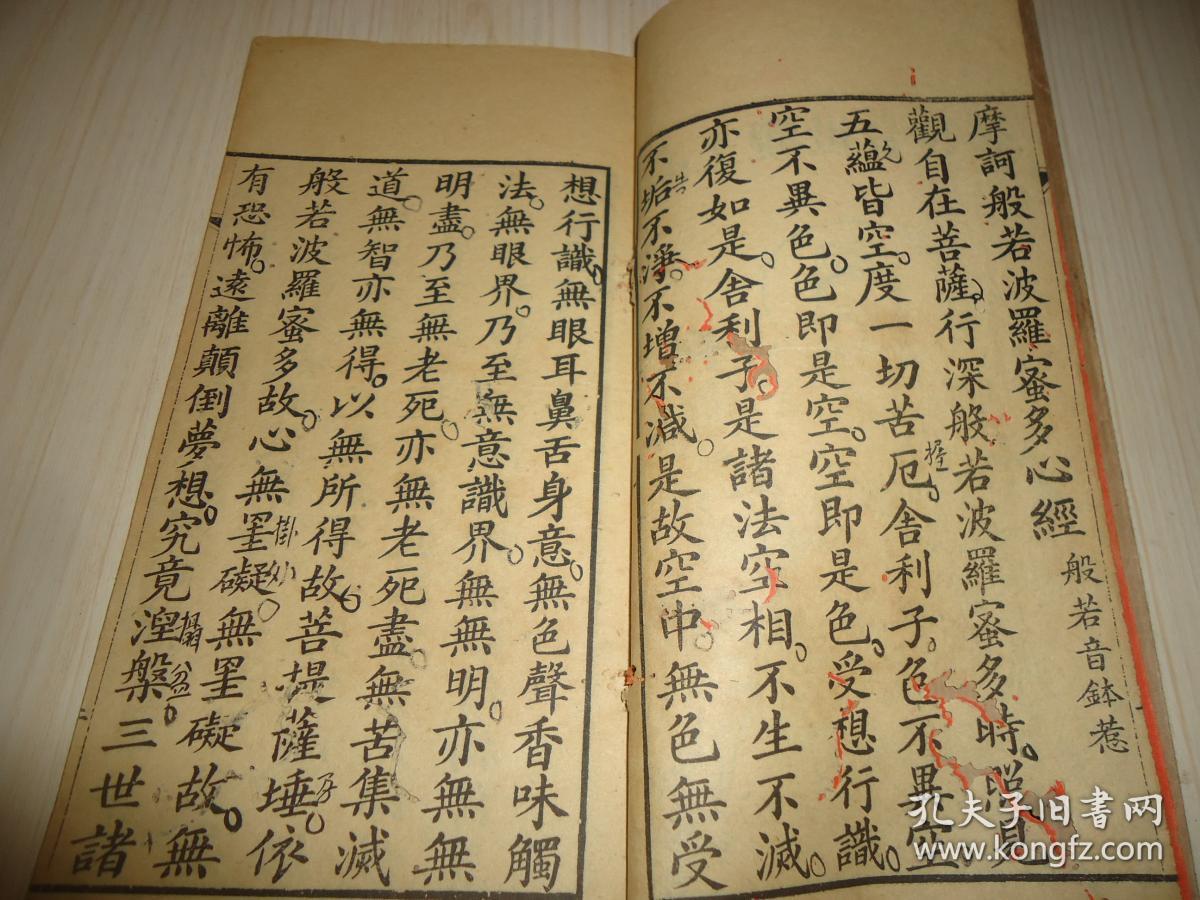 摩訶般若波羅蜜多心經 般若音鉢惹
觀自在菩薩。行深般若波羅蜜多時。照見
五蘊皆空。度一切苦厄。舍利子。色不異空
握
空不異色。色即是空。空即是色。受想行識。
亦復如是。舍利子。是諸法空相。不生不滅。
不垢不淨。不增不減。是故空中。無色無受
告
想行識。無眼耳鼻舌身意。無色聲香味觸
法。無眼界。乃至無意識界。無無明。亦無無
明盡。乃至無老死。亦無老死盡。無苦集滅
道。無智亦無得。以無所得故。菩提薩埵。依
般若波羅蜜多故。心無罣礙。無罣礙故。無
掛
有恐怖。遠離顛倒夢想。究竟涅槃。三世諸
孔夫子旧书网
www.kongfz.com